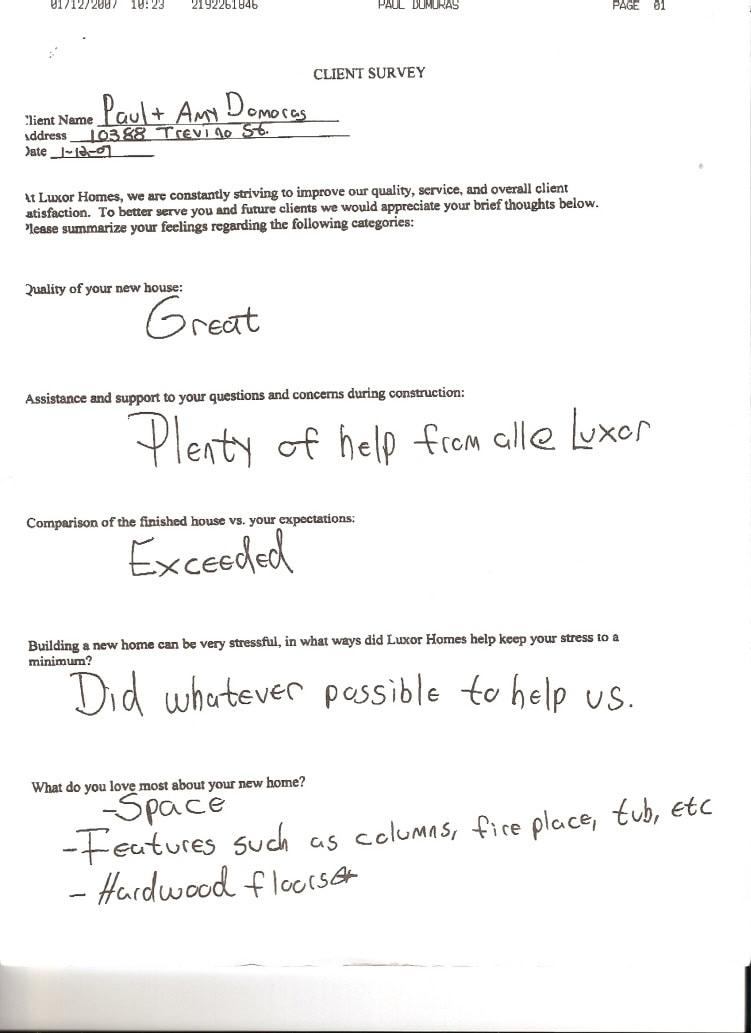 01/12/2007 10:23 2192261046 PAUL DOMORAS PAGE 01
CLIENT SURVEY
Client Name Paul + Amy Domoras
Address 10388 Trevino St.
Date 1-12-07
At Luxor Homes, we are constantly striving to improve our quality, service, and overall client
satisfaction. To better serve you and future clients we would appreciate your brief thoughts below.
Please summarize your feelings regarding the following categories:
Quality of your new house:
Great
Assistance and support to your questions and concerns during construction:
Plenty of help from all @ Luxor
Comparison of the finished house vs. your expectations:
Exceeded
Building a new home can be very stressful, in what ways did Luxor Homes help keep your stress to a
minimum?
Did whatever possible to help us.
What do you love most about your new home?
-Space
-Features such as columns, fire place, tub, etc
- Hardwood floors